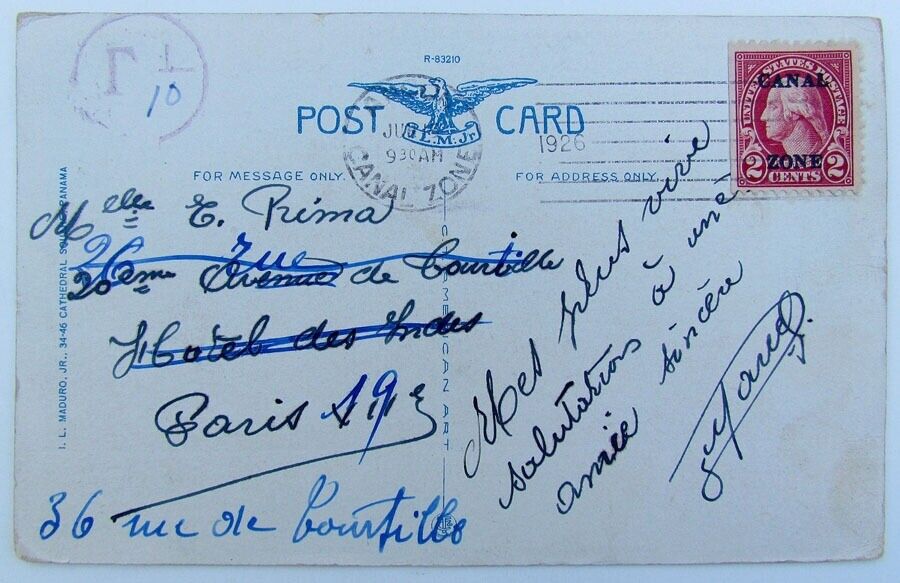 T
10
R-83210
POST CARD
I.L.M.Jr.
JUN
930 AM
CANAL ZONE
1926
UNITED STATES POSTAGE
CANAL
ZONE
2 CENTS 2
FOR MESSAGE ONLY.
FOR ADDRESS ONLY.
I. L. MADURO, JR., 34-46 CATHEDRAL PANAMA
AMERICAN ART
Melle E. Prima
36 rue
20eme Avenue de Courtille
Hotel des Indes
Paris 19e
36 rue de Courtille
Mes plus vive
salutations à une
amie sincère